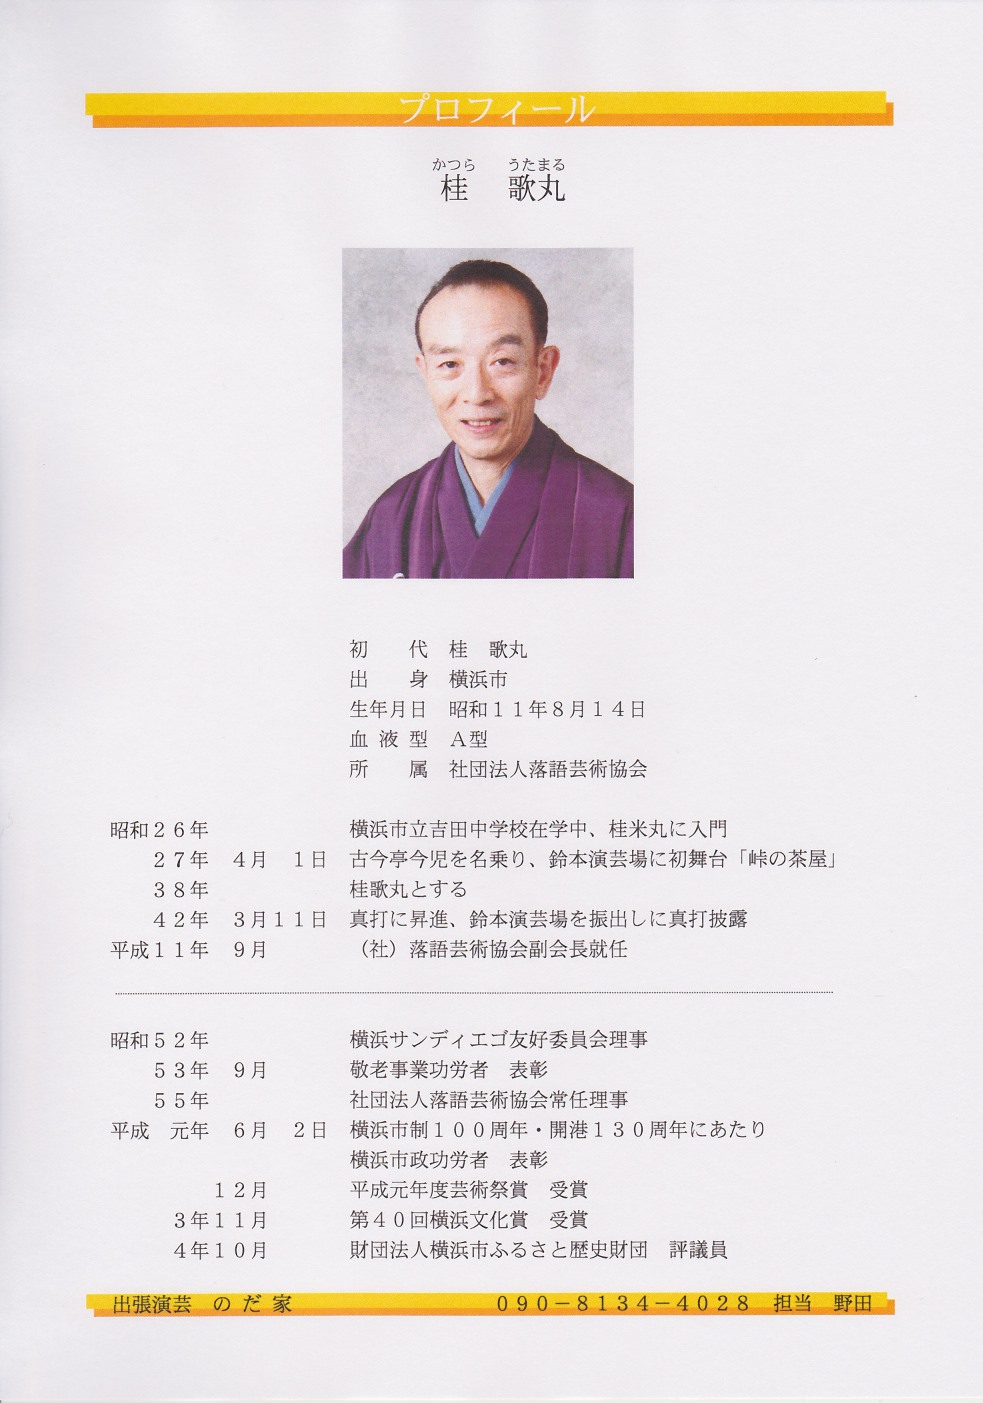 プロフィール
かつら　うたまる
桂　歌丸
初　　代　桂　歌丸
出　　身　横浜市
生年月日　昭和１１年８月１４日
血 液 型　Ａ型
所　　属　社団法人落語芸術協会
昭和２６年　横浜市立吉田中学校在学中、桂米丸に入門
２７年　４月　１日　古今亭今児を名乗り、鈴本演芸場に初舞台「峠の茶屋」
３８年　桂歌丸とする
４２年　３月１１日　真打に昇進、鈴本演芸場を振出しに真打披露
平成１１年　９月　（社）落語芸術協会副会長就任
昭和５２年　横浜サンディエゴ友好委員会理事
５３年　９月　敬老事業功労者　表彰
５５年　社団法人落語芸術協会常任理事
平成　元年　６月　２日　横浜市制１００周年・開港１３０周年にあたり
横浜市政功労者　表彰
１２月　平成元年度芸術祭賞　受賞
３年１１月　第４０回横浜文化賞　受賞
４年１０月　財団法人横浜市ふるさと歴史財団　評議員
出張演芸　の だ 家　０９０－８１３４－４０２８　担当　野田